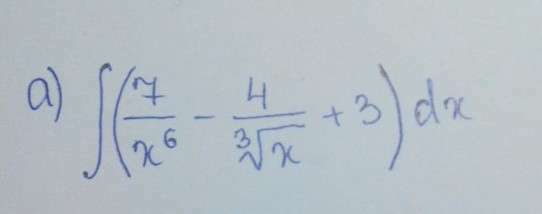 a) ∫(7/x⁶ - 4/∛x + 3) dx